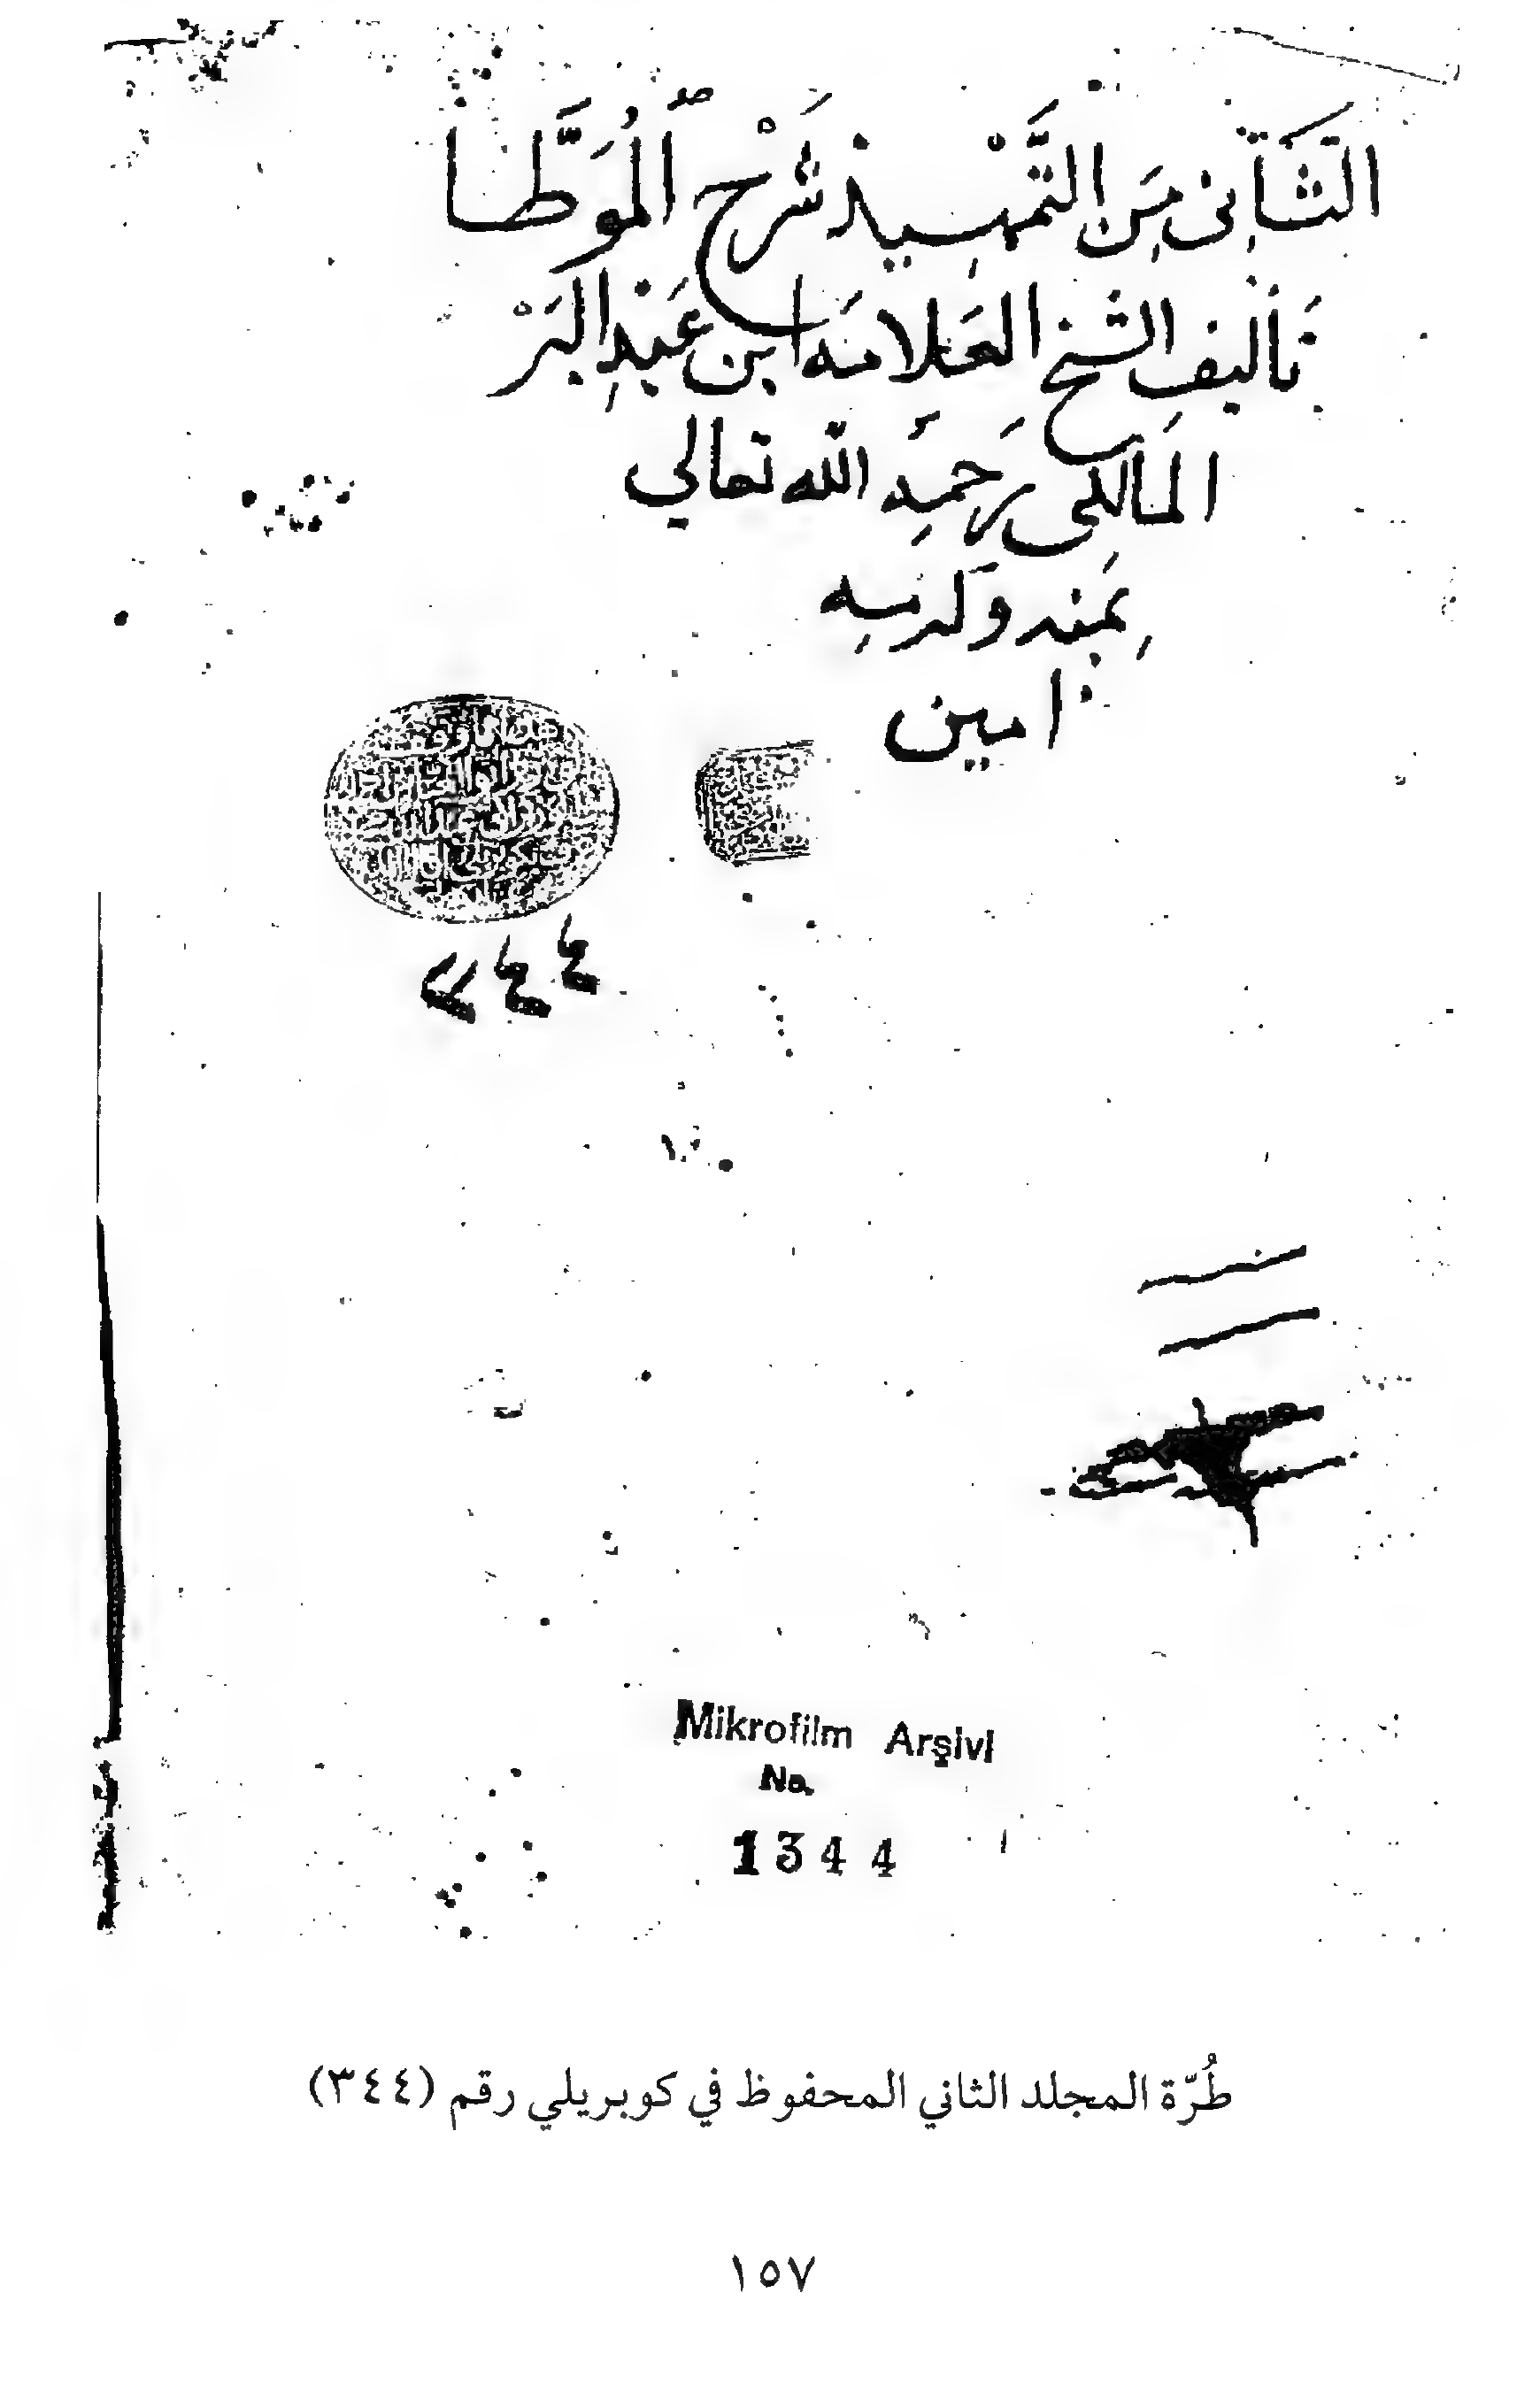 الثَّاني مِنَ التَّمْهِيد شَرْح المُوَطَّا
تَأليف الشيخ العَلامَه ابن عَبْدِ البَرْ
المَالكي رَحمِهُ الله تعالي
بِمَنه وَكرمِه
امين
٣٤٤
Mikrofilm Arşivi
No.
1344
طُرّة المجلد الثاني المحفوظ في كوبريلي رقم (٣٤٤)
١٥٧